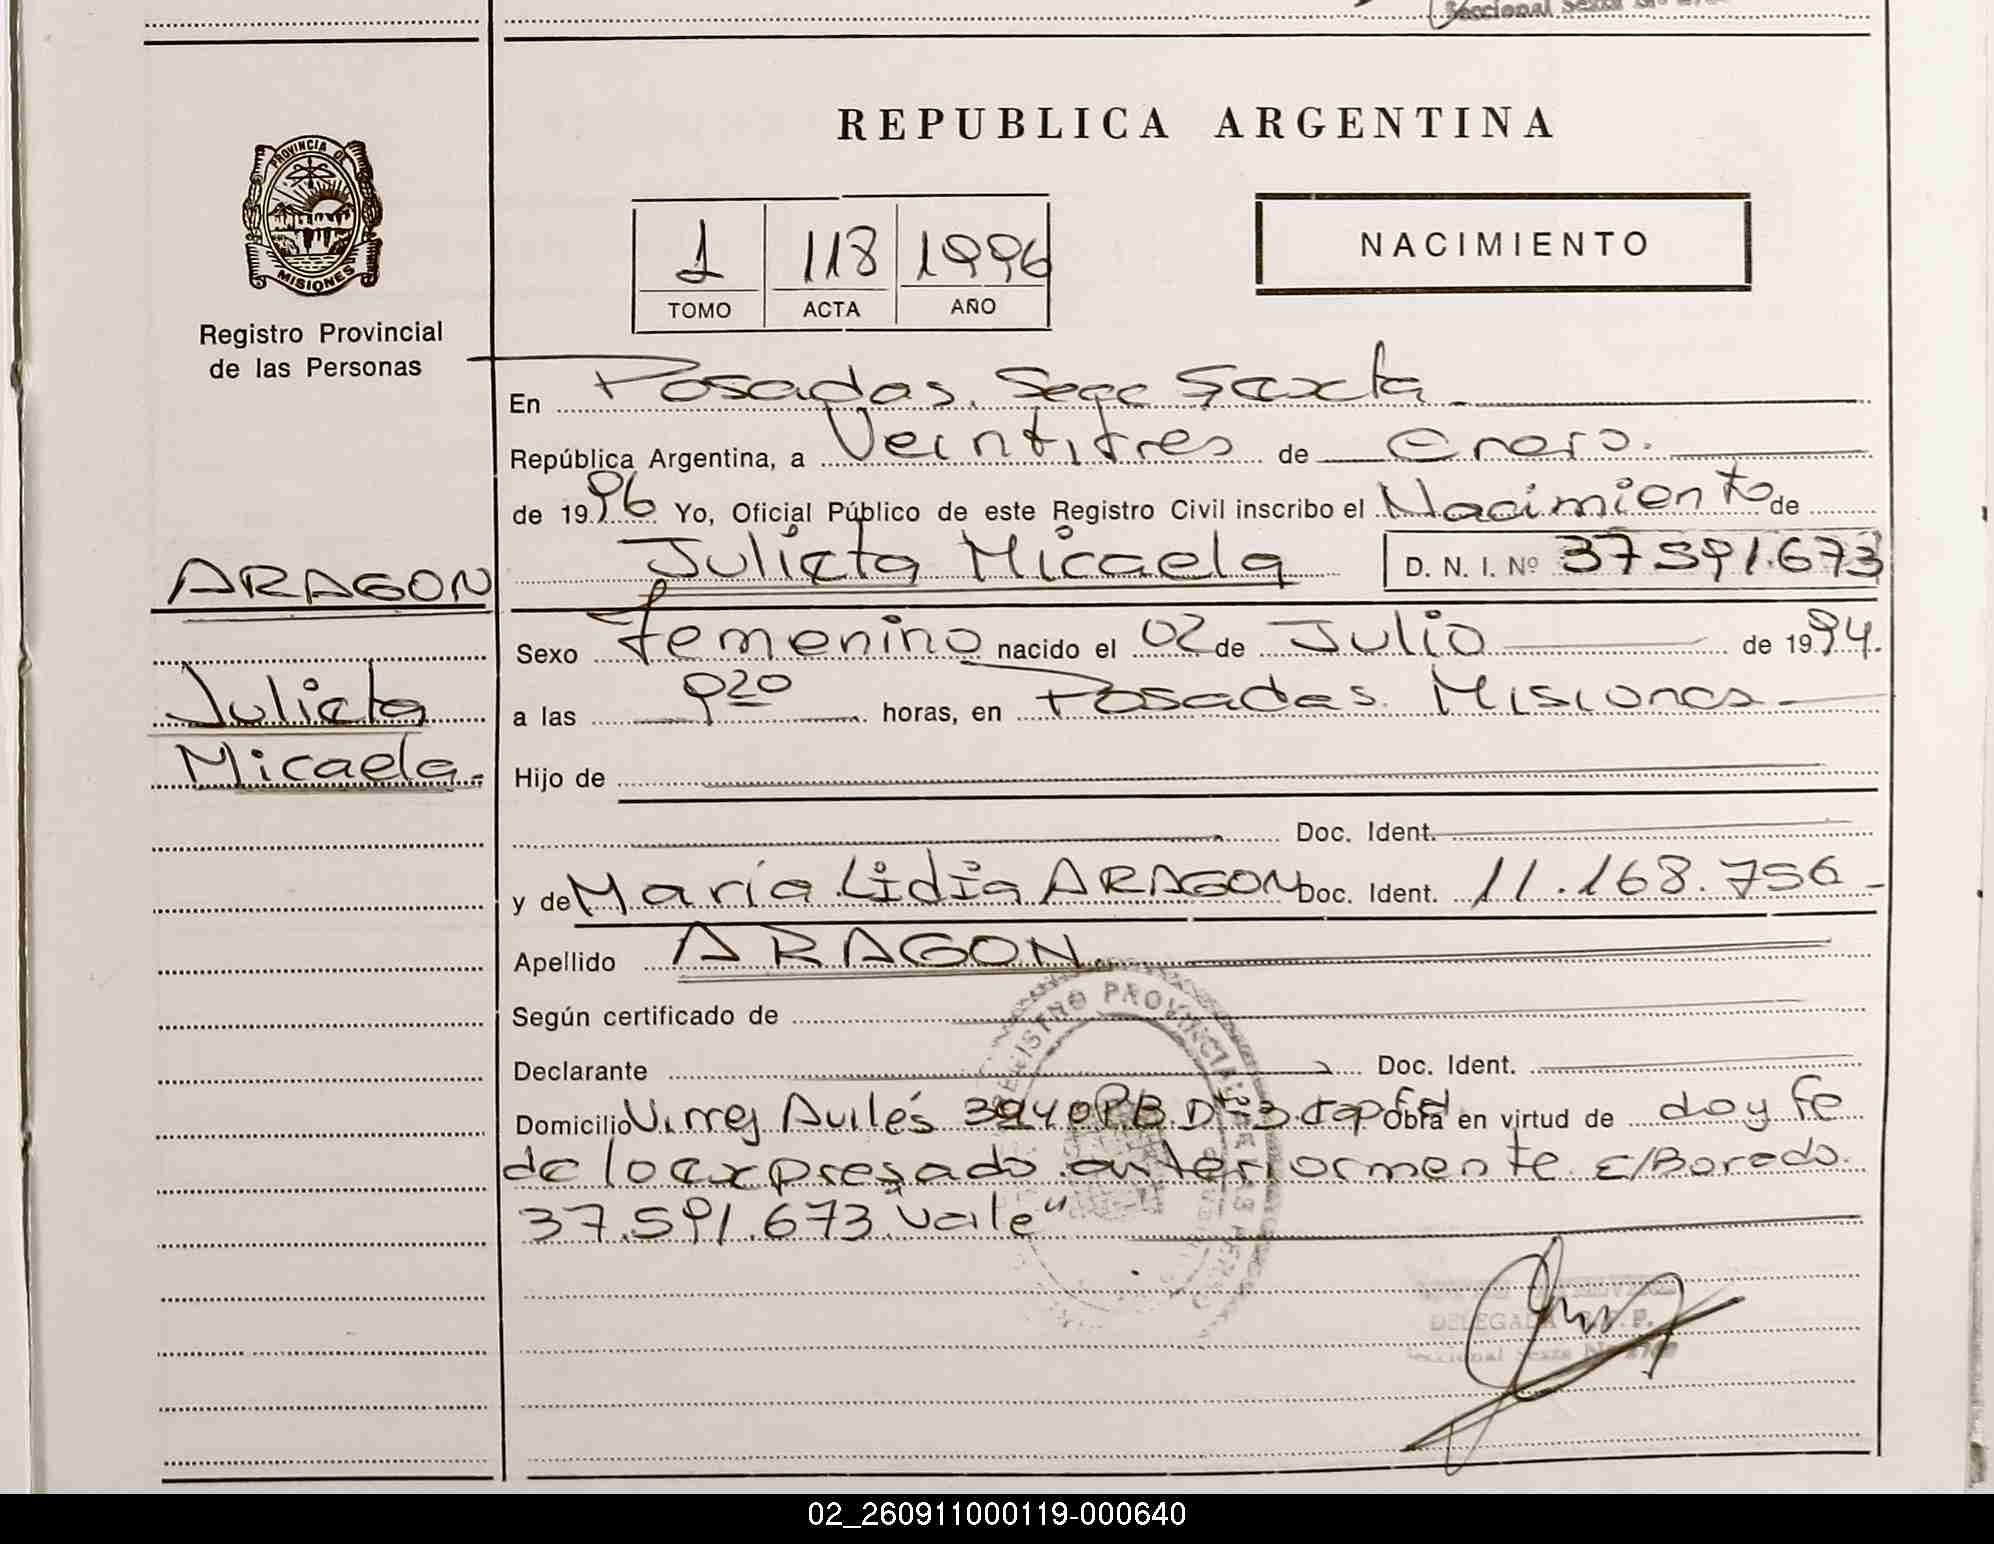 Seccional Sexta
REPUBLICA ARGENTINA
PROVINCIA DE
MISIONES
Registro Provincial
de las Personas
1 118 1996
TOMO ACTA AÑO
NACIMIENTO
En Posadas. Secc Sexta
República Argentina, a Veintitres de Enero.
de 1996 Yo, Oficial Público de este Registro Civil inscribo el Nacimiento de
Julieta Micaela D. N. I. Nº 37591.673
ARAGON
Julieta
Micaela.
Sexo Femenino nacido el 02 de Julio de 1994.
a las 920 horas, en Posadas. Misiones
Hijo de
Doc. Ident.
y de María Lidia ARAGON Doc. Ident. 11.168.756
Apellido ARAGON
Según certificado de
Declarante Doc. Ident.
Domicilio Virrey Avilés 3940 P.B. D-3. Obra en virtud de doy fe
de lo expresado anteriormente E/Borado.
37.591.673 vale"
REGISTRO PROVINCIAL
DELEGADA
Seccional Sexta
02_260911000119-000640